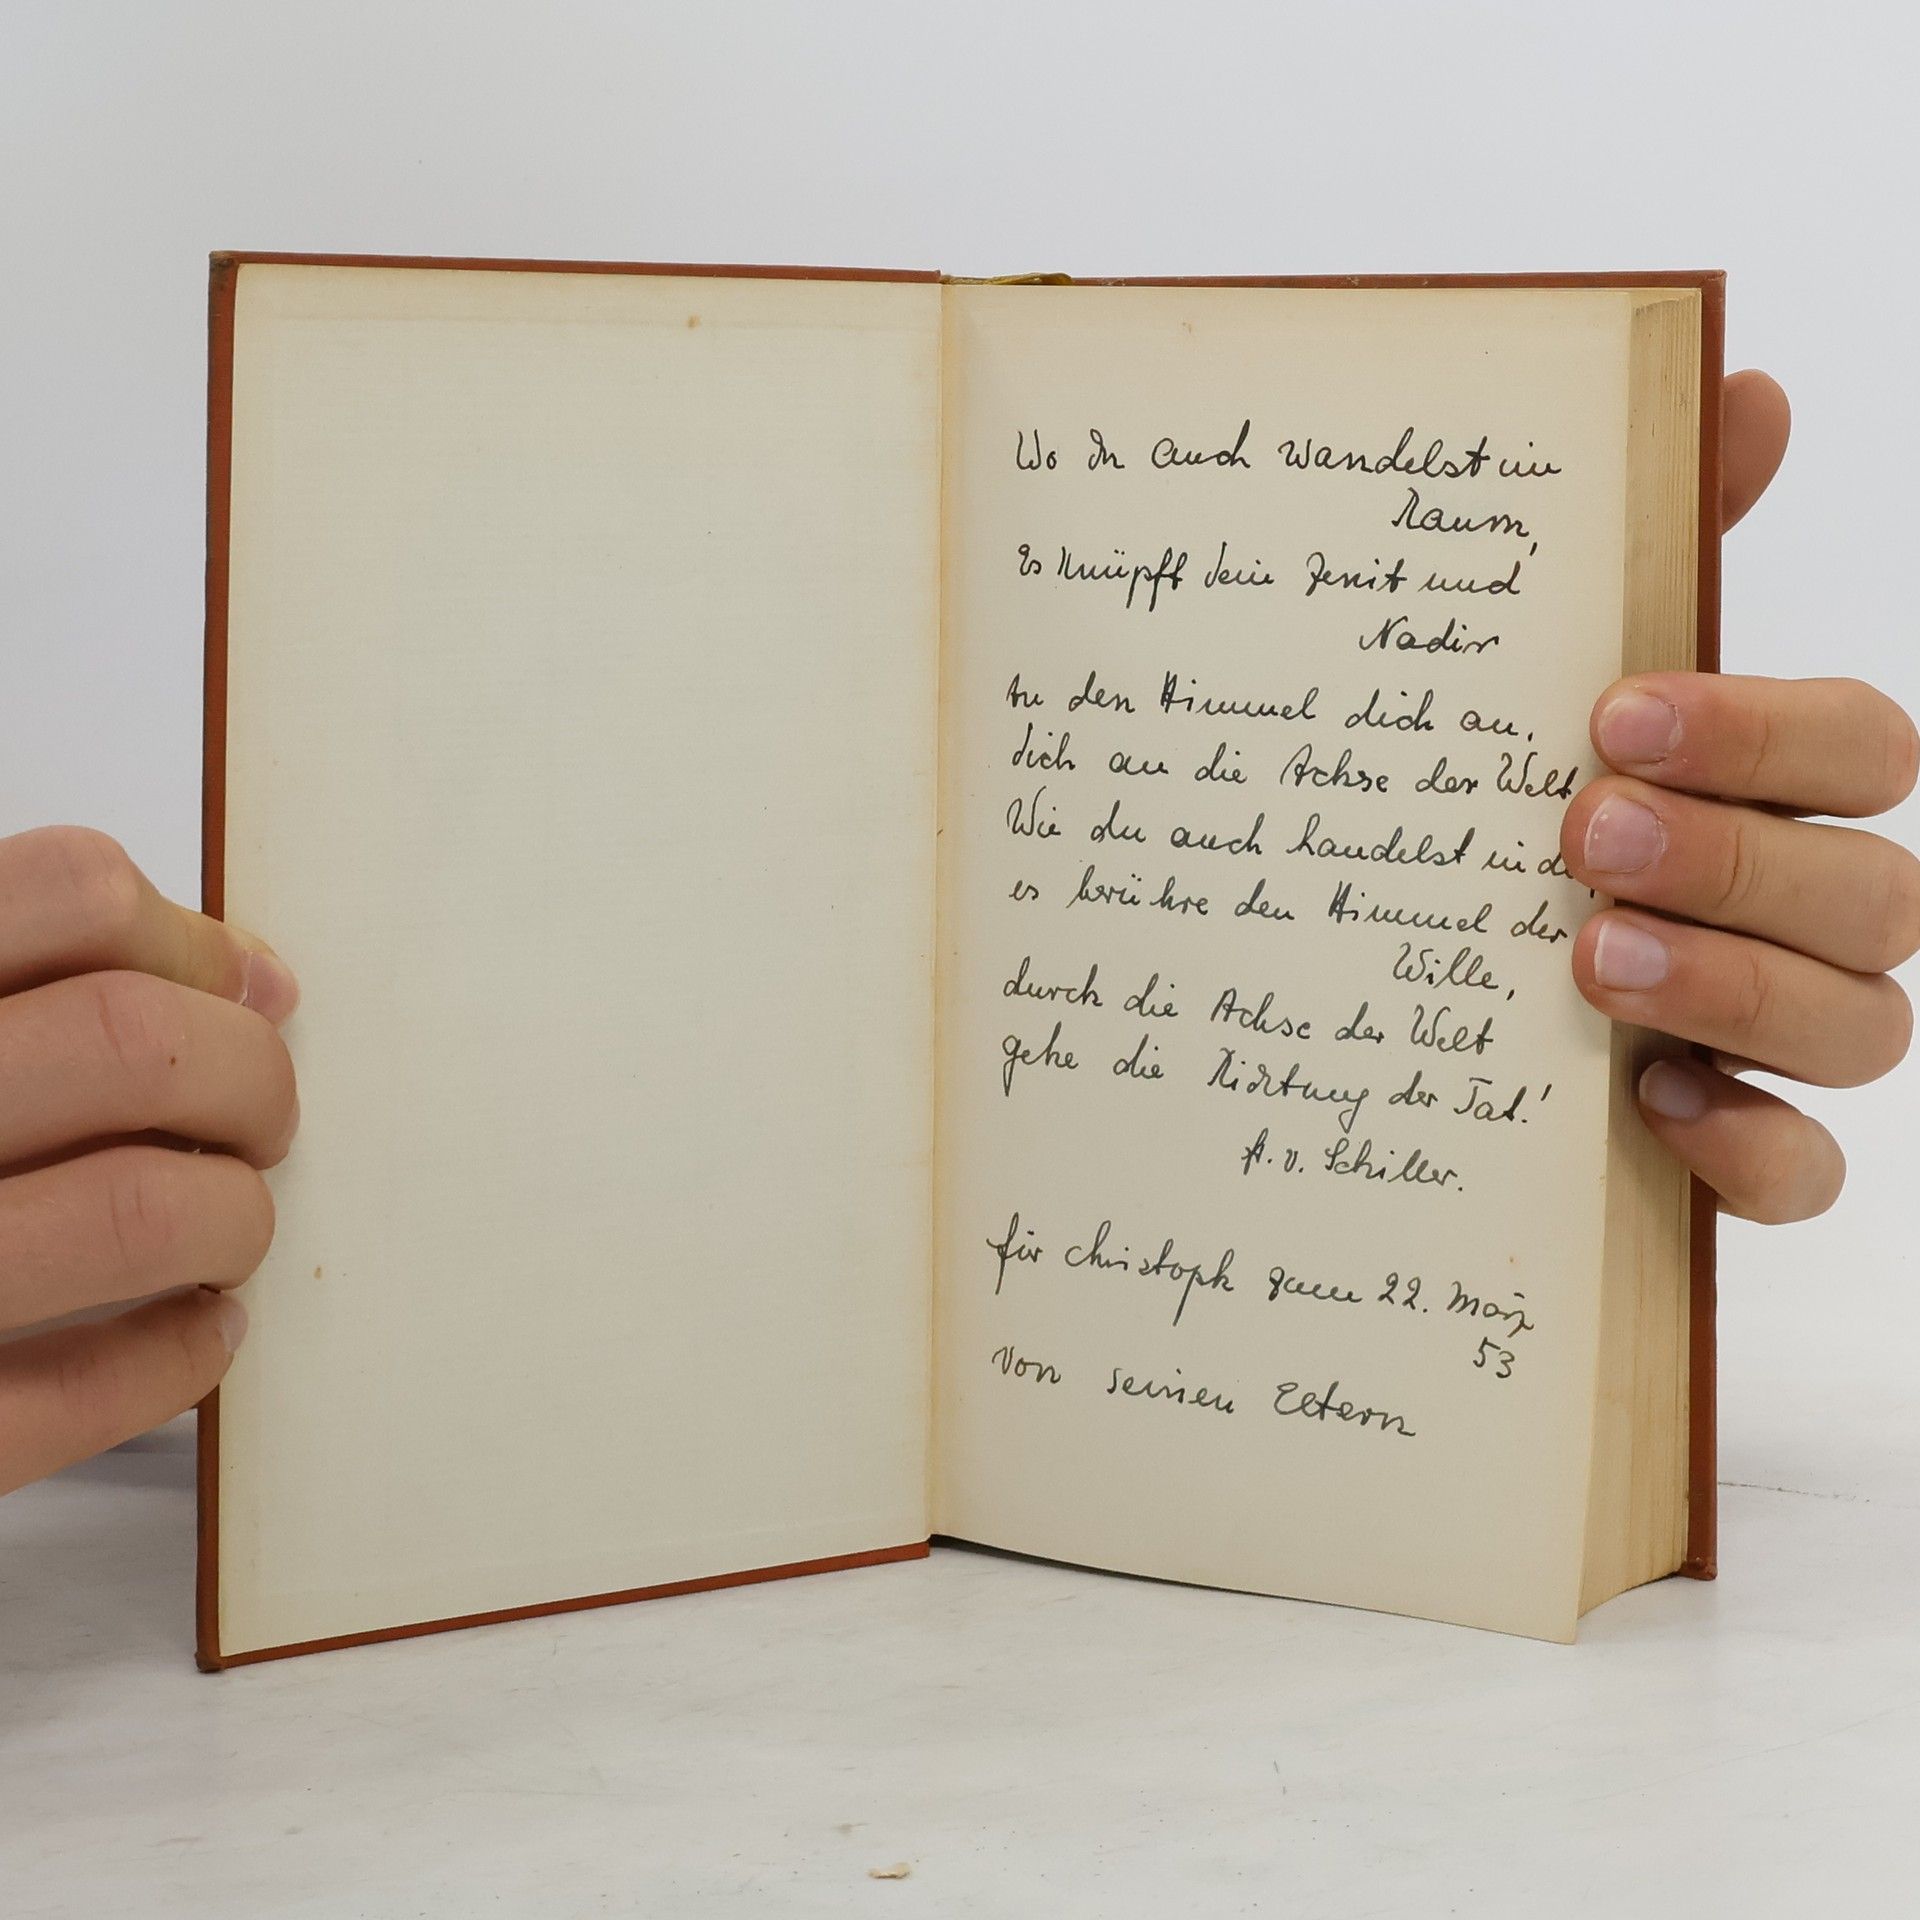 Wo Du auch wandelst im
Raum,
Es knüpft dein Zenit und
Nadir
An den Himmel dich an,
dich an die Achse der Welt
Wie du auch handelst in
es berühre den Himmel der
Wille,
durch die Achse der Welt
gehe die Richtung der Tat!
v. Schiller.
für Christoph zum 22. März
53
von seinen Eltern